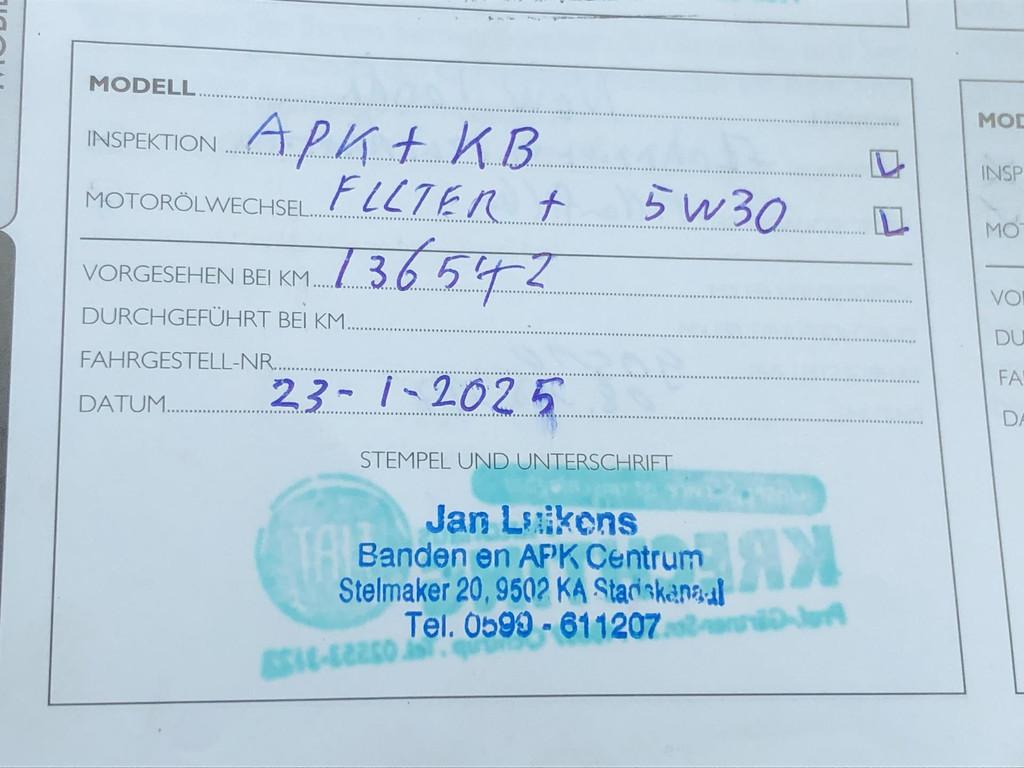 MODELL
INSPEKTION APK + KB
MOTORÖLWECHSEL FILTER + 5W30
VORGESEHEN BEI KM 136542
DURCHGEFÜHRT BEI KM
FAHRGESTELL-NR.
DATUM 23-1-2025
STEMPEL UND UNTERSCHRIFT
Jan Luikens
Banden en APK Centrum
Stelmaker 20, 9502 KA Stadskanaal
Tel. 0599 - 611207
MOD
INSP
MOT
VO
DU
FA
DA